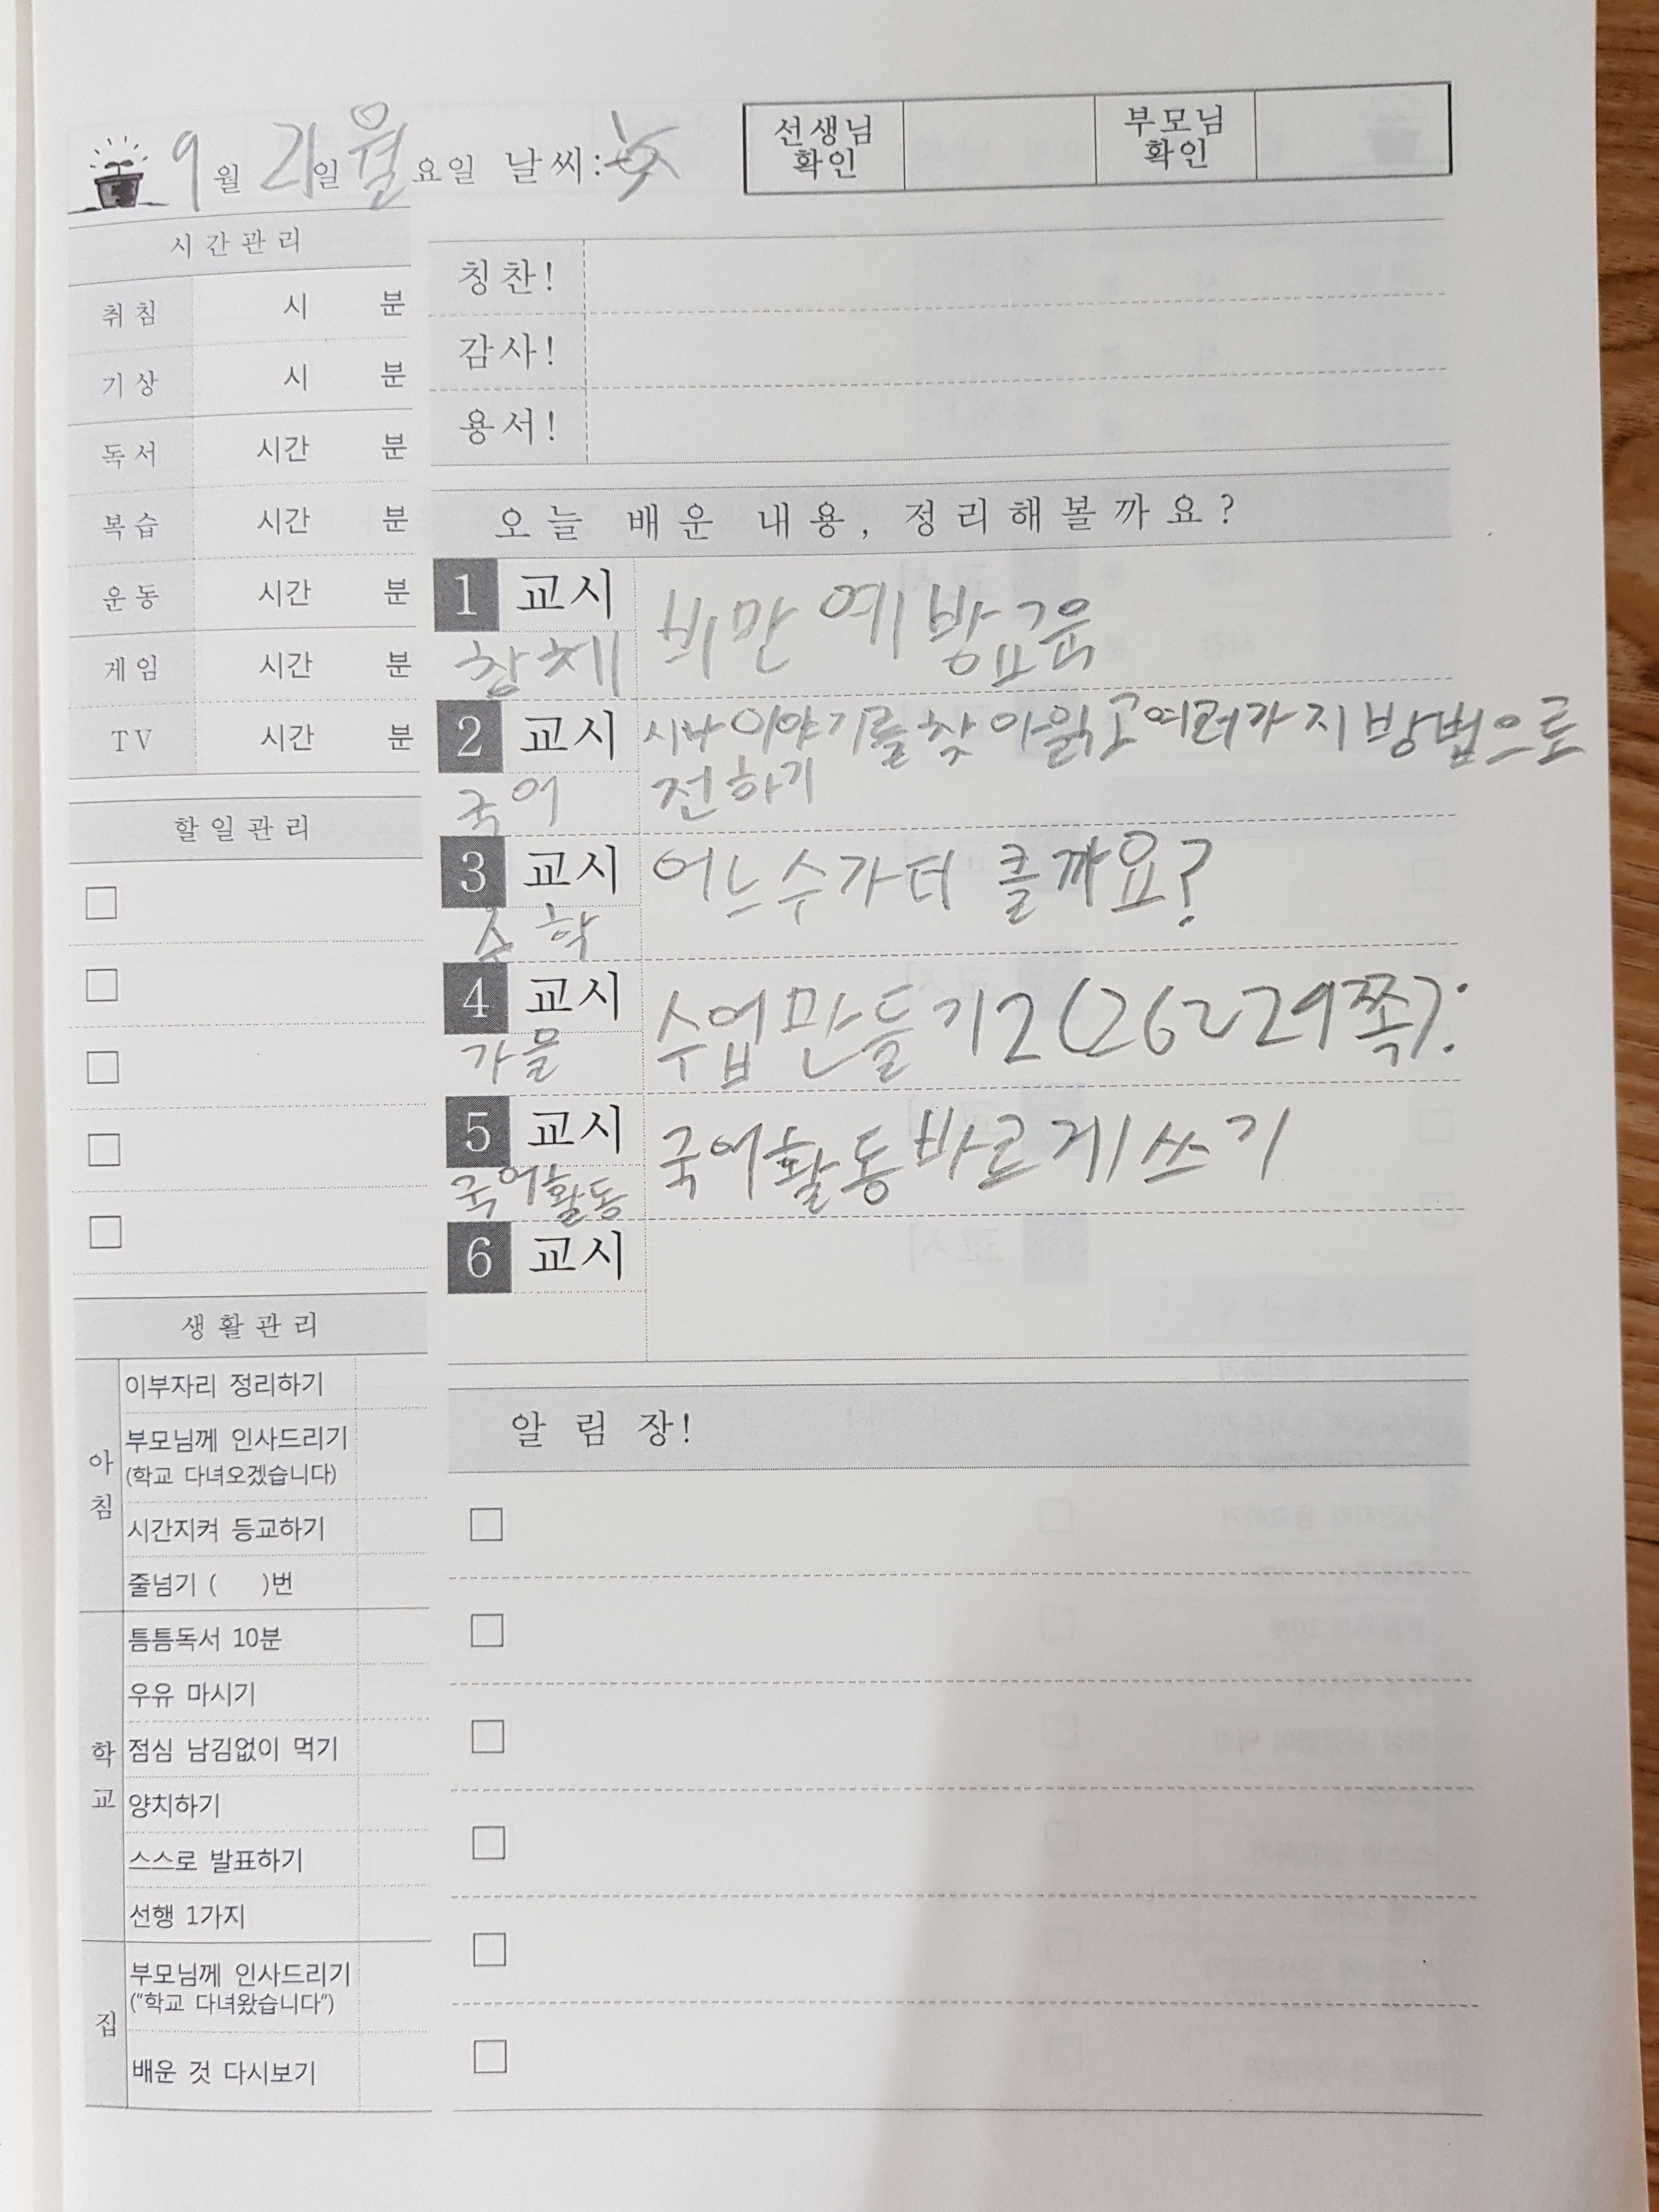 9월 21일 월요일 날씨:
선생님 확인
부모님 확인
시간관리
취침 시 분
기상 시 분
독서 시간 분
복습 시간 분
운동 시간 분
게임 시간 분
TV 시간 분
할일관리
생활관리
아침
이부자리 정리하기
부모님께 인사드리기
(학교 다녀오겠습니다)
시간지켜 등교하기
줄넘기 ( )번
학교
틈틈독서 10분
우유 마시기
점심 남김없이 먹기
양치하기
스스로 발표하기
선행 1가지
집
부모님께 인사드리기
("학교 다녀왔습니다")
배운 것 다시보기
칭찬!
감사!
용서!
오늘 배운 내용, 정리해볼까요?
1 교시
창체
비만 예방교육
2 교시
국어
시나 이야기를 찾아 읽고 여러가지 방법으로
전하기
3 교시
수학
어느 수가 더 클까요?
4 교시
가을
수업 만들기2(26~29쪽):
5 교시
국어활동
국어활동 바르게 쓰기
6 교시
알림장!